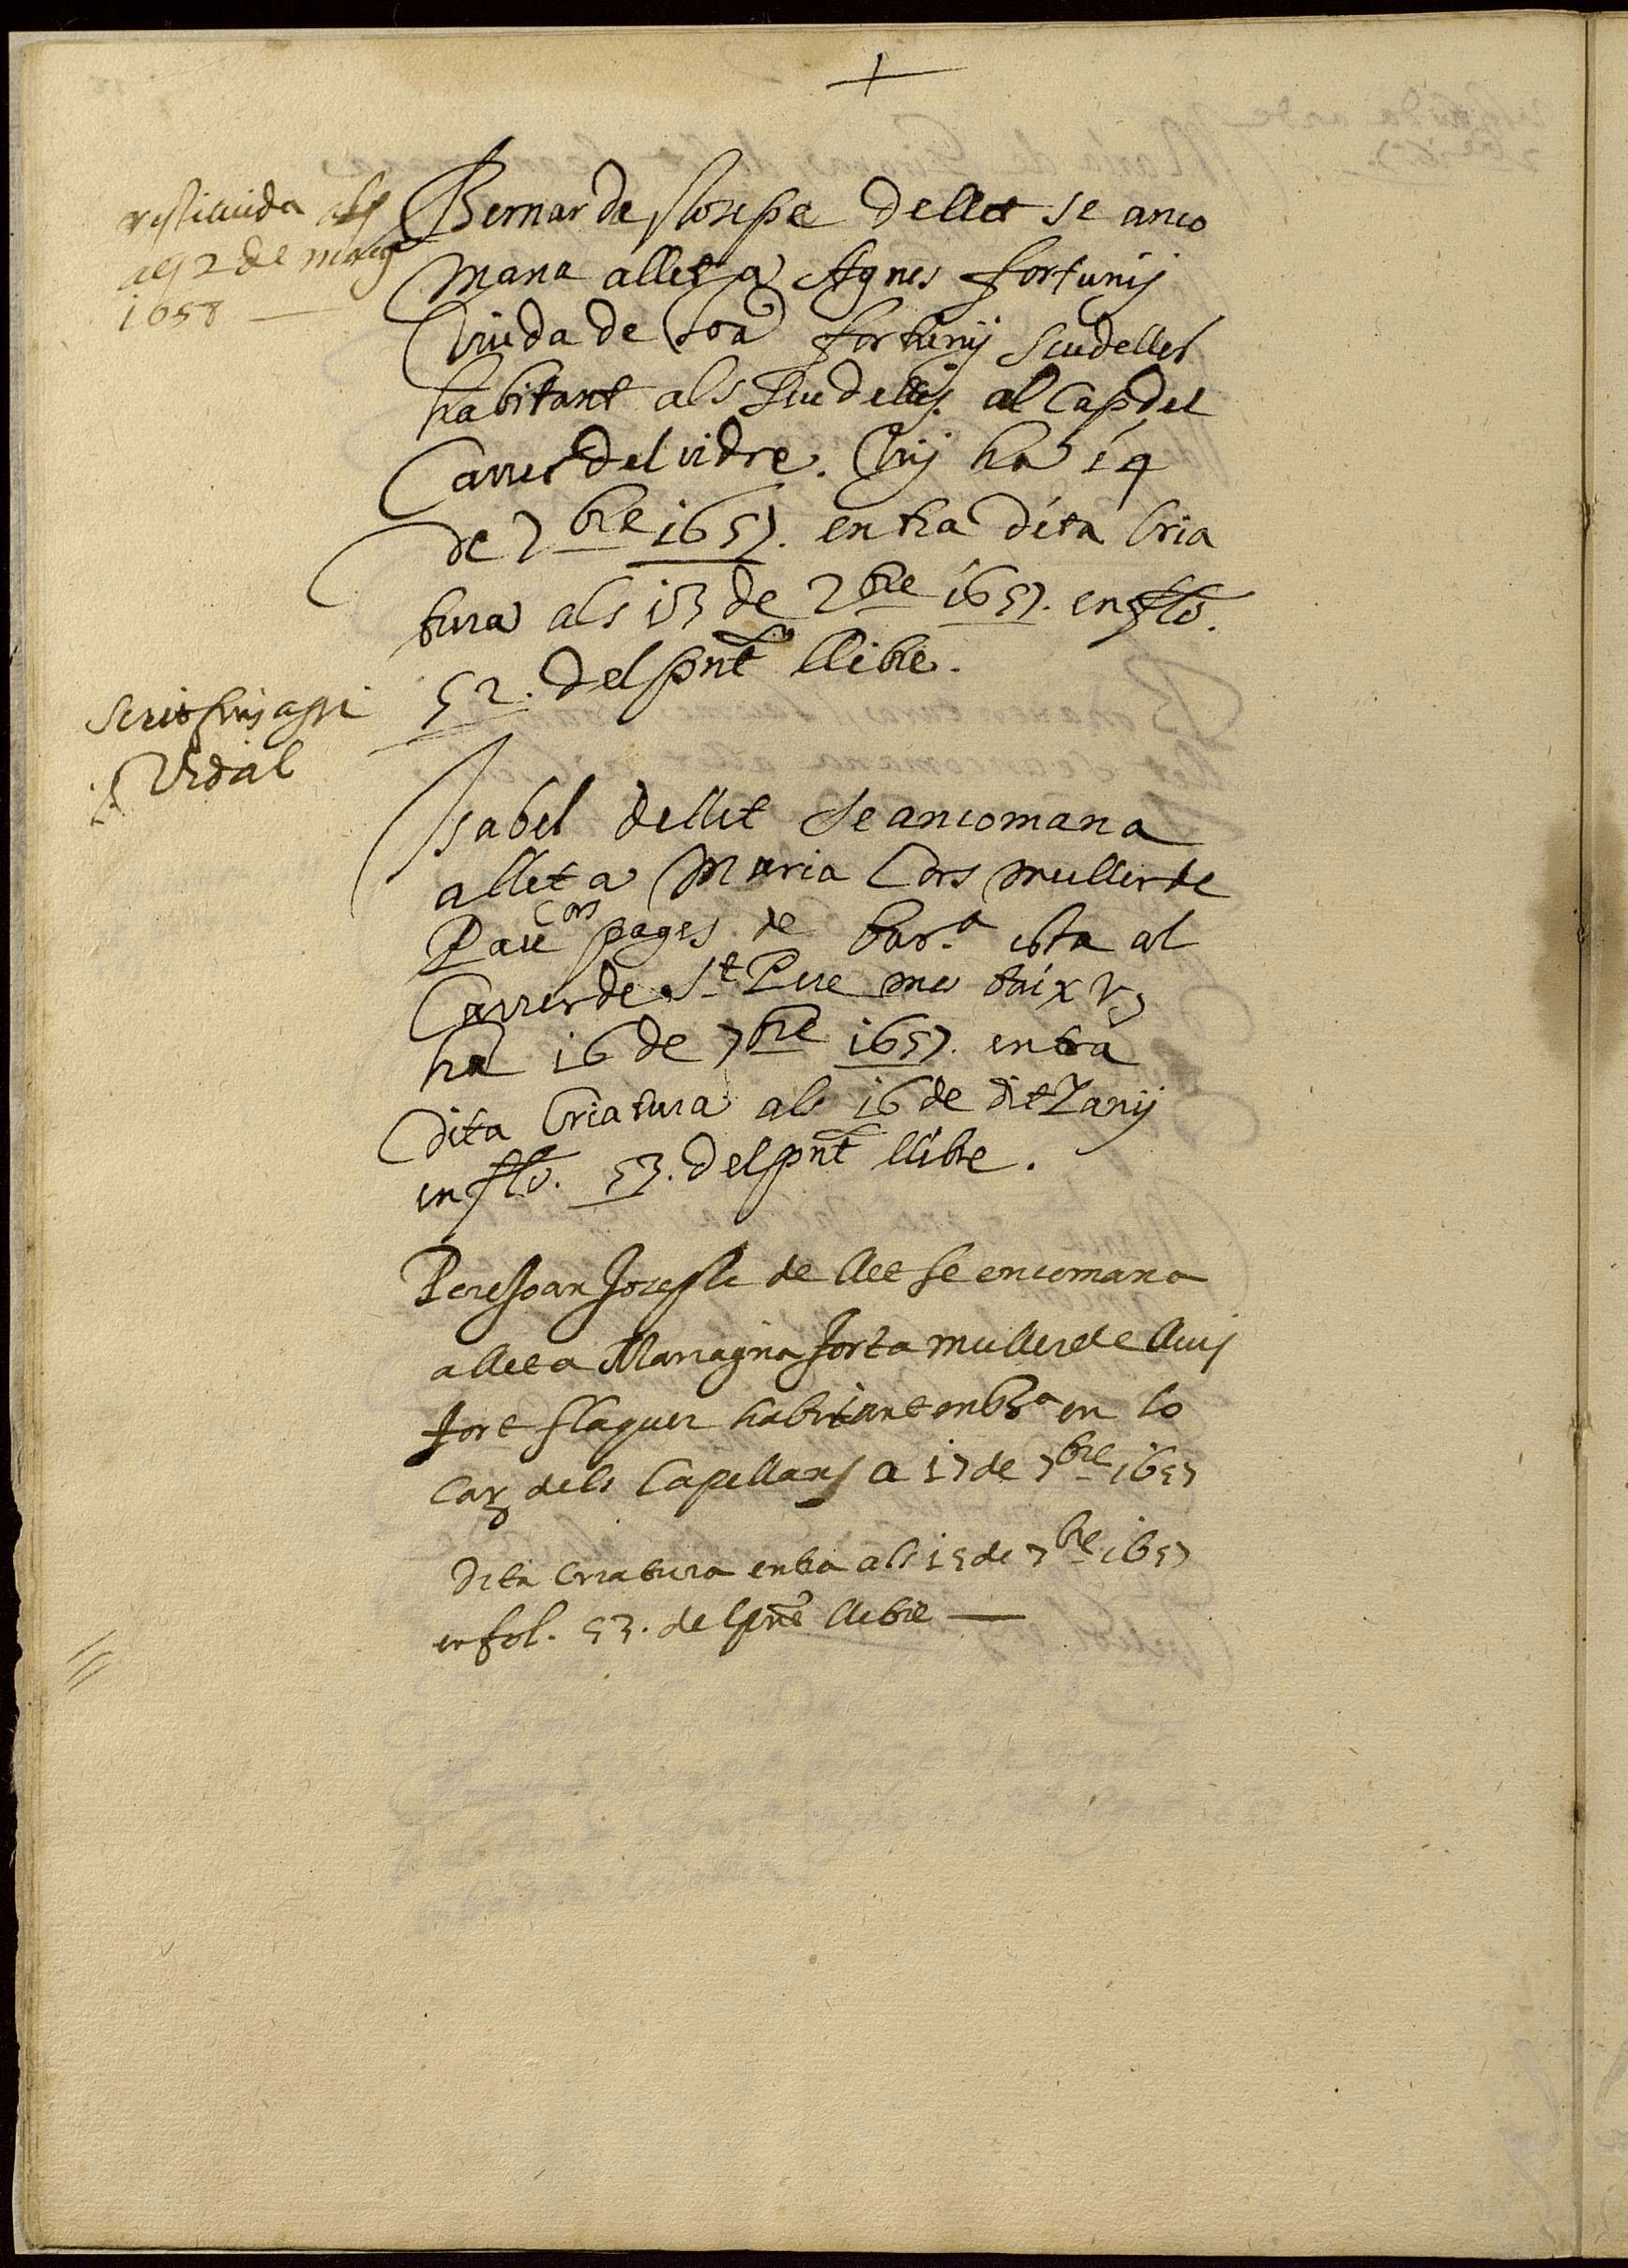 +
restituida als
als 2 de maig
1658
Bernarda Josepa dellet se anco
mana allet a Agnes fortunÿ
Viuda de Joã fortunÿ scudeller
habitant als Scudellers al Cap del
Carrer del vidre. Vuÿ ha 14
de 7bre 1657. entra dita Cria
tura als 13 de 7bre 1657. en flõ.
52. del pñt llibre.
Scrit fins assi
Vidal
Isabel dellet se ancomana
allet a Maria Cors muller de
Pau Cors pages de bar.a esta al
Carrer de St Pere mes baix vy
ha 16 de 7bre 1657. entra
dita Criatura als 16 de dit Y anÿ
en flõ. 53. del pñt llibre.
Pere Joan Joseph de llet se encomana
allet a Mariagna fort muller de lluis
fort flaquer habitant en Bar.a en lo
Carr dels Capellans a 17 de 7bre 1657
Dita Criatura entra als 15 de 7bre 1657
en fol. 53. del pñt llibre —